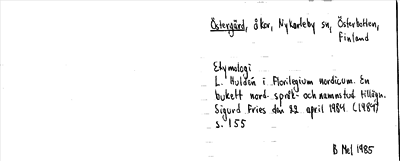 Östergärd, åker, Nykarleby sn, Österbotten,
Finland
Etymologi
L. Huldén i Florilegium nordicum. En
bukett nord. språk- och namnstud. tillägn.
Sigurd Fries den 22 april 1984. (1984)
s. 155
B Mel 1985